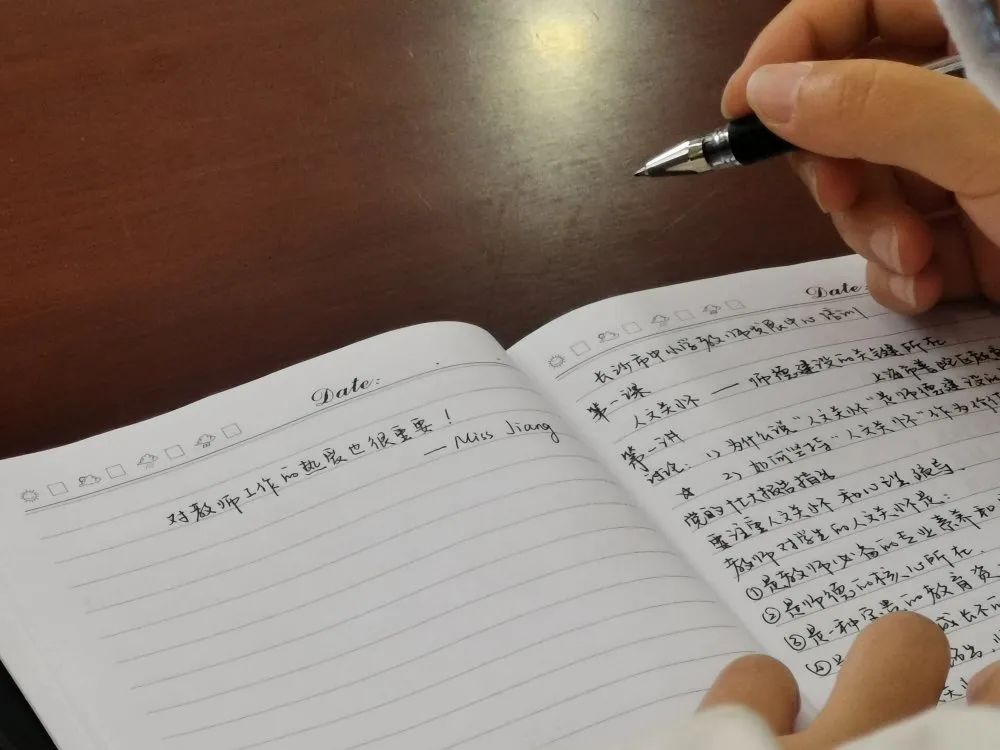 Date:
对教师工作的热爱也很重要！
— Miss Jiang
Date:
长沙市中小学教师发展中心培训
第一课
人文关怀 — 师德建设的关键所在
上海市普陀区教
第二讲
讨论：1）为什么说“人文关怀”是师德建设的
☆ 2）如何坚持“人文关怀”作为
党的十七大报告指出
要注重人文关怀和心理疏导.
教师对学生的人文关怀是：
①是教师必备的专业素养和
②是师德的核心所在.
③是一种宝贵的教育资
成长不
④是